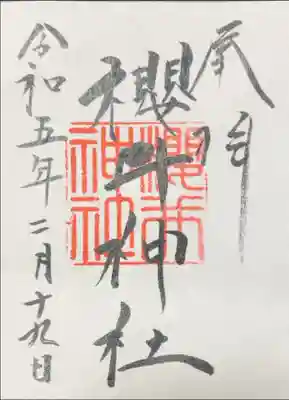 奉拝
櫻井神社
櫻井
神社
令和五年二月十九日